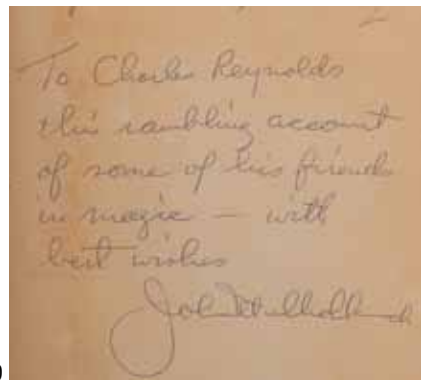 To Charles Reynolds
this rambling account
of some of his friends
in magic — with
best wishes
John Mulholland